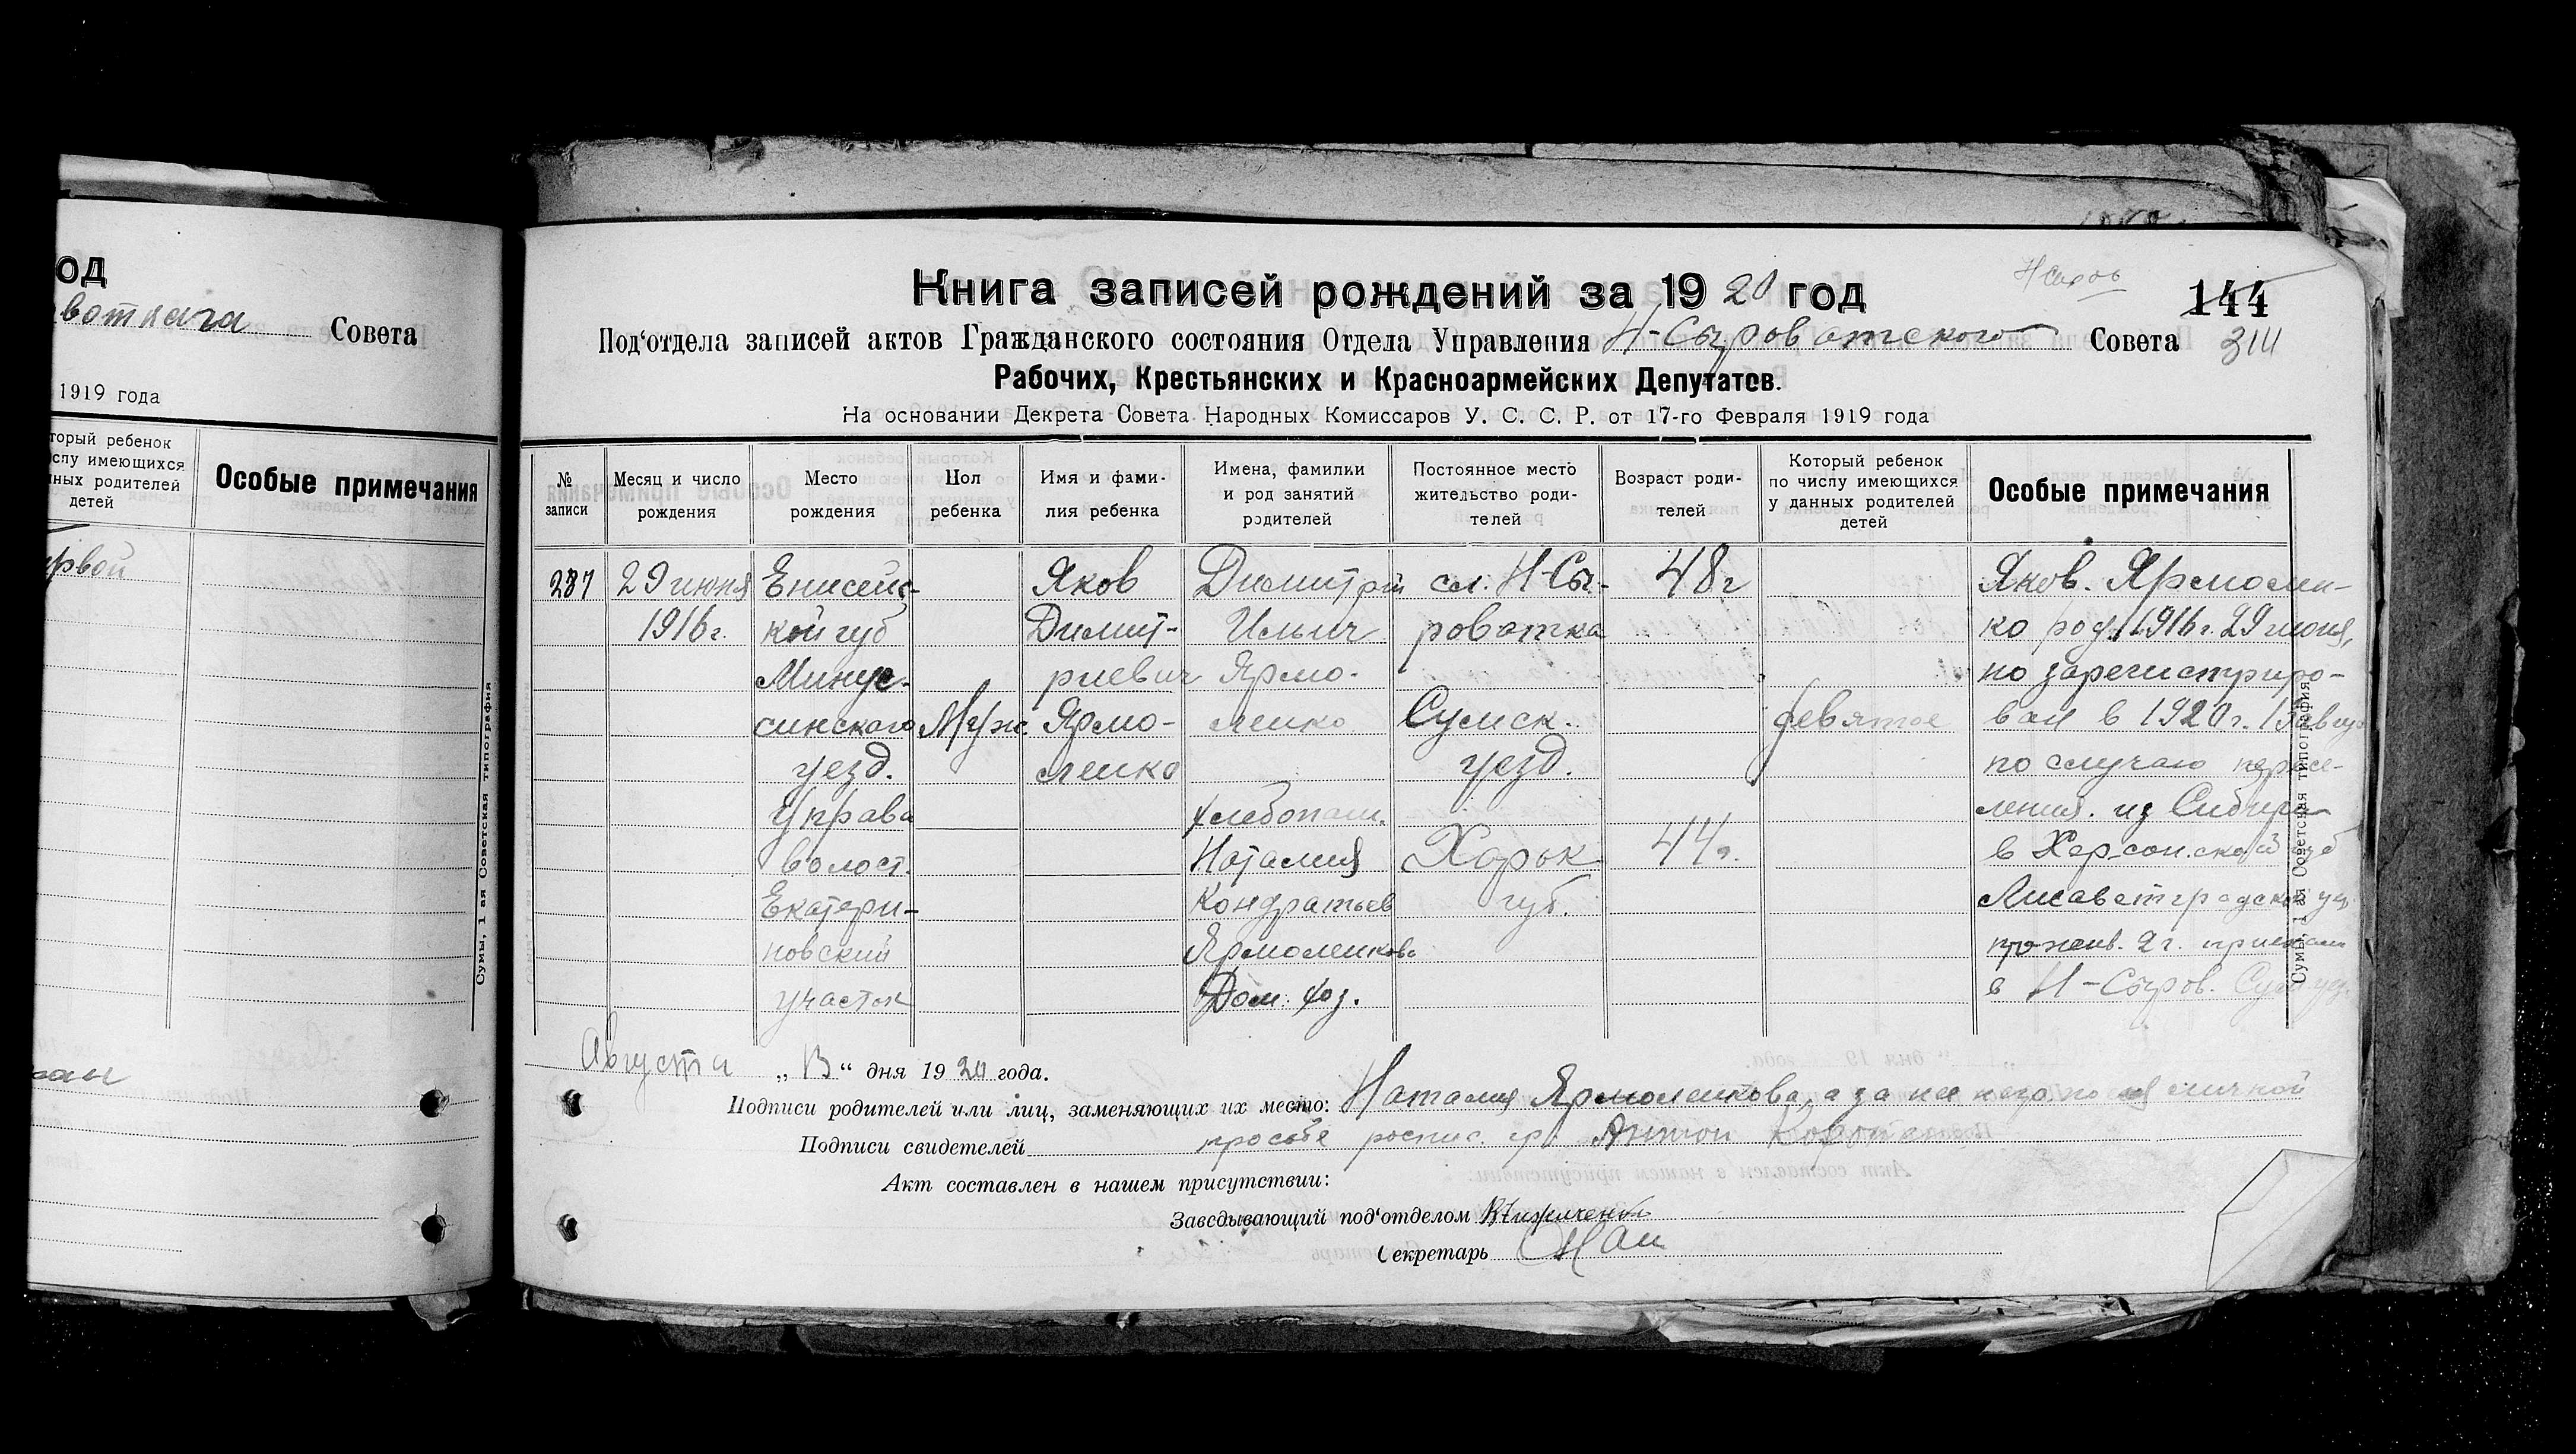 од
воткага Совета
1919 года
торый ребенок
слу имеющихся
нных родителей
детей
Особые примечания
ервой
Сумы, 1 ая Советская типография
Н Сыров
144
314
Книга записей рождений за 1920 год
Под'отдела записей актов Гражданского состояния Отдела Управления Н-Сыроватского Совета
Рабочих, Крестьянских и Красноармейских Депутатов.
На основании Декрета Совета Народных Комиссаров У. С. С. Р. от 17-го Февраля 1919 года
№ записи
Месяц и число рождения
Место рождения
Пол ребенка
Имя и фами-
лия ребенка
Имена, фамилии
и род занятий
родителей
Постоянное место
жительство роди-
телей
Возраст роди-
телей
Который ребенок
по числу имеющихся
у данных родителей
детей
Особые примечания
287
29 июня
1916 г.
Енисейс-
кой губ
Минус-
синского
уезд.
Управа
волост.
Екатери-
новский
участок
Муж.
Яков
Димит-
риевич
Ярмо-
ленко
Димитрий
Ильич
Ярмо-
ленко
хлебопаш.
Наталия
Кондратьев
Ярмоленкова
Дом. хоз.
сл. Н-Сы-
роватка
Сумск.
уезд.
Харьк
губ.
48 г
44 г.
девятое
Яков. Ярмолен-
ко род. 1916 г. 29 июня,
но зарегистриро-
ван в 1920 г. 13 авгус
по случаю пересе-
ления. из Сибири
в Херсонской губ
Лисаветградской уез
прожив. 2 г. приехали
в Н-Сыров. Сум уез.
Сумы, 1 ая Советская типография
Августа „13“ дня 1920 года.
Подписи родителей или лиц, заменяющих их место: Наталия Ярмоленкова, а за нее по ея личной
Подписи свидетелей просьбе роспис. гр. Антон
Акт составлен в нашем присутствии:
Заведывающий под'отделом
Секретарь